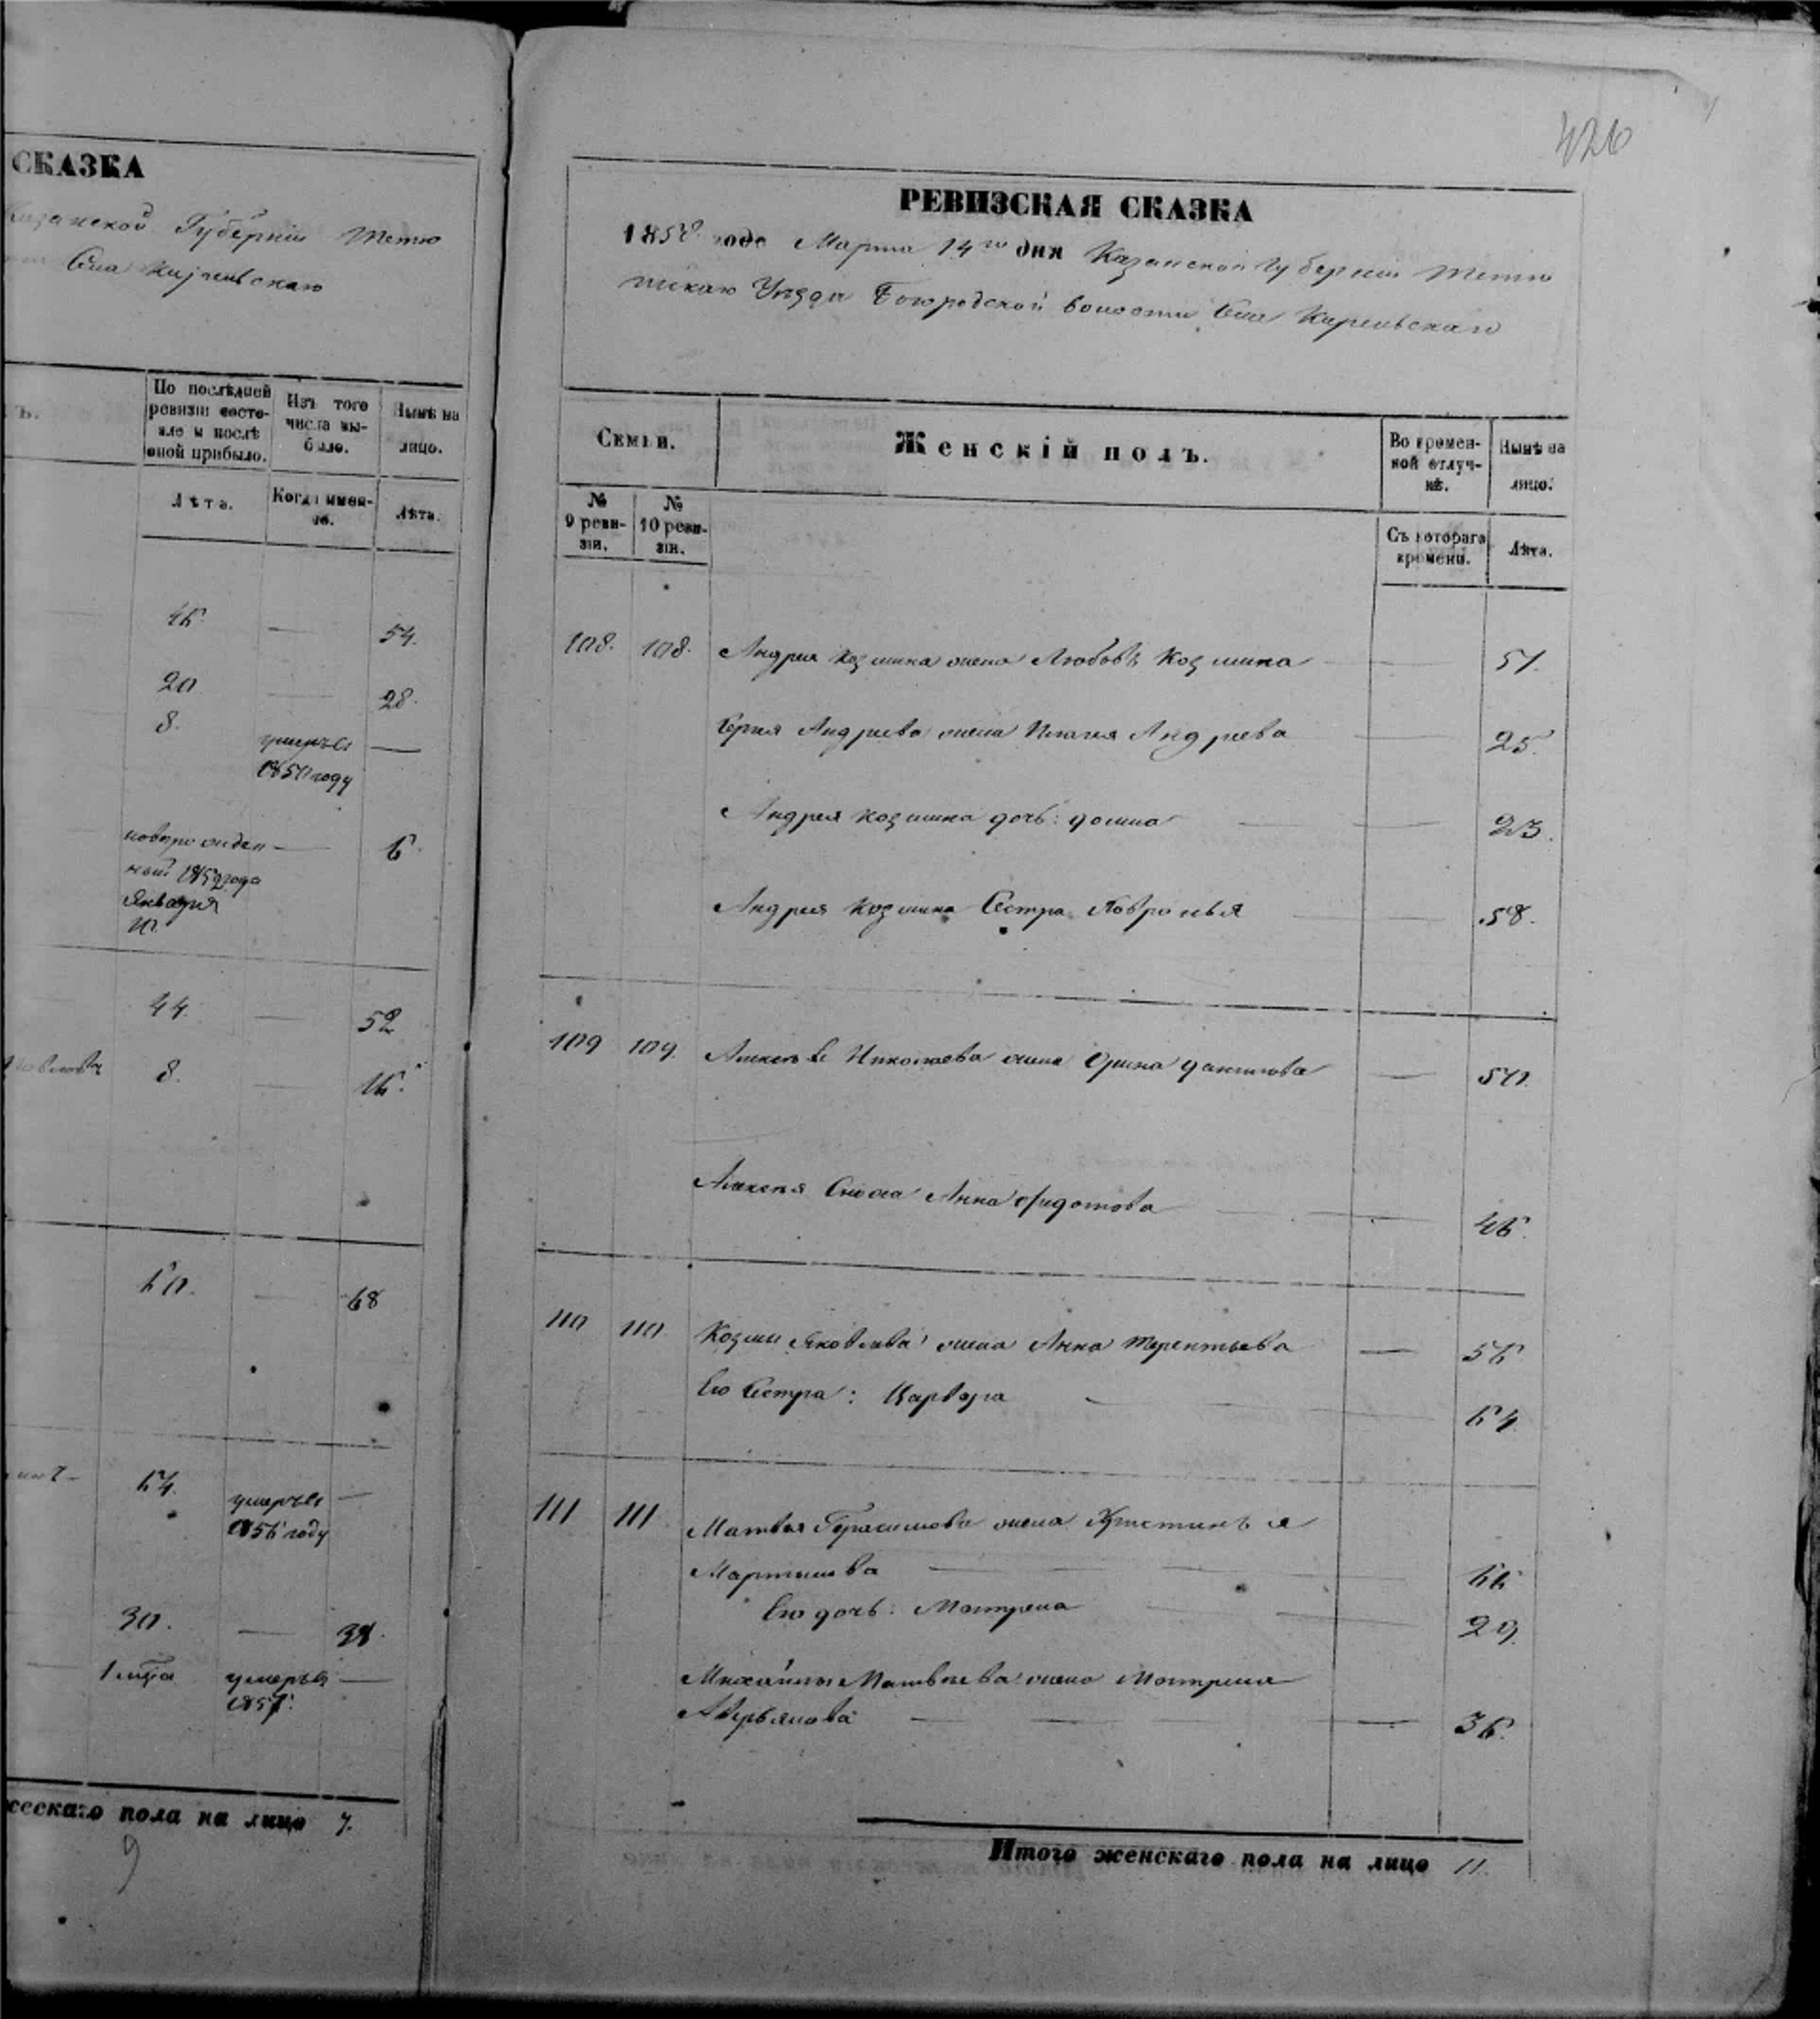 СКАЗКА
Казанской Губерніи Тетю
Села Кирельскаго
По послѣдней ревизіи состо-
яло и послѣ
оной прибыло.
Изъ того
числа вы-
было.
Нынѣ на
лицо.
Лѣта.
Когда имен-
но.
Лѣта.
46. — 54.
20 — 28.
8. умеръ въ —
1850 году
новорожден — 6.
ный 1852 года
Января
10.
44. — 52
8. — 16.
60. — 68
64. умеръ въ —
1856 году
30. — 38.
умеръ въ —
мужескаго пола на лицо 7.
9
426
РЕВИЗСКАЯ СКАЗКА
1858 года Марта 14го дня Казанской Губерніи Тетю
шскаго Уѣзда Богородской волости Села Кирельскаго
Семьи.
Женскій полъ.
Во времен-
ной отлуч-
кѣ.
Нынѣ на
лицо.
№
9 реви-
зіи.
№
10 реви-
зіи.
Съ котораго
времени.
Лѣта.
108. 108. Андрея Козмина жена Любовь Козмина — 51.
Сергея Андреева жена Пелагея Андреева — 25.
Андрея Козмина дочь: Домна — 23.
Андрея Козмина Сестра Ховронья — 58.
109 109. Алексея Николаева жена Орина Данилова — 50.
Алексея Сноха Анна Федотова — 46.
110 110. Козмы Яковлева жена Анна Терентьева — 56
Его Сестра: Варвара — 64
111 111 Матвея Герасимова жена Христинья
Мартынова — 66
Его дочь: Матрена — 29.
Михайлы Матвеева жена Матрена
Аверьянова — 36.
Итого женскаго пола на лицо 11.